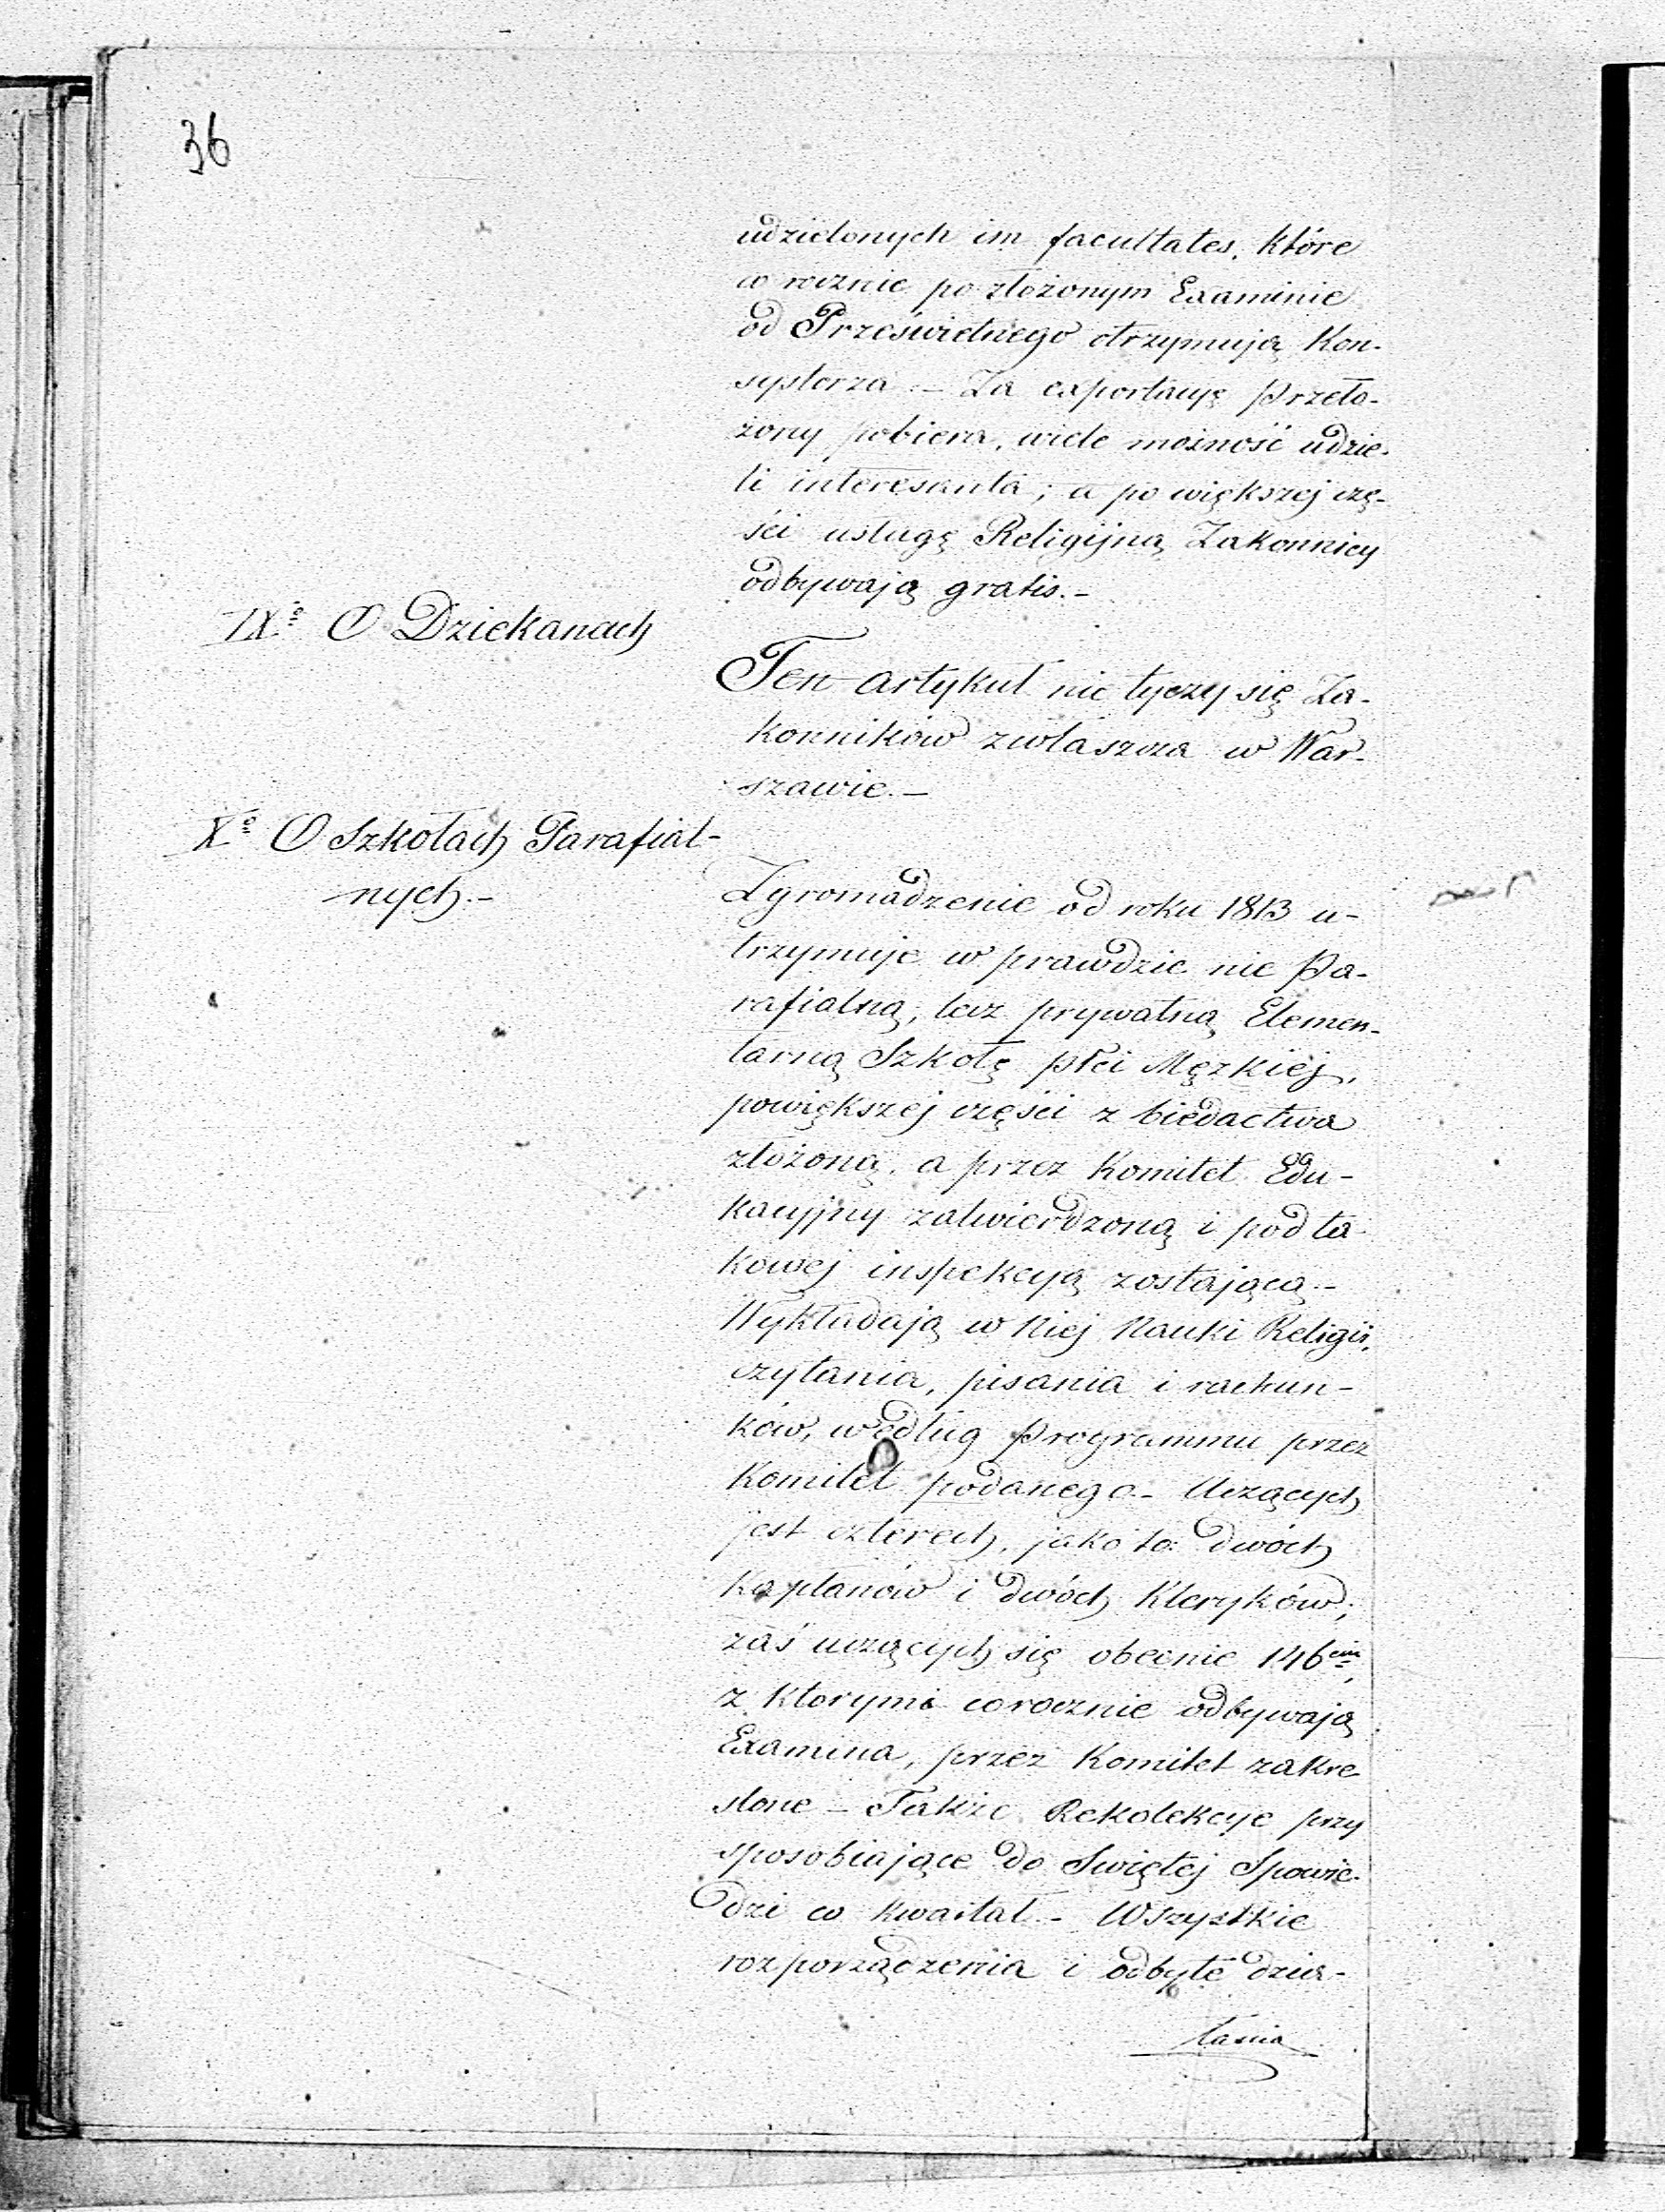 36
udzielonych im facultates, które
w rocznie po złożonym Examinie
od Prześwietnego otrzymują Kon-
systorza. – Za exportacyę Przeło-
żony pobiera, wiele możność udzie-
li interesanta; a po większej czę-
ści usługę Religijną Zakonnicy
odbywają gratis. –
IXº O Dziekanach
Ten artykuł nie tyczy się Za-
konników zwłaszcza w War-
szawie. –
Xº O Szkołach Parafial-
nych. –
Zgromadzenie od roku 1813 u-
trzymuje w prawdzie nie Pa-
rafialną, lecz prywatną Elemen-
tarną Szkołę płci Męzkiéj,
powiększej części z biedactwa
złożoną, a przez Komitet Edu-
kacyjny zatwierdzoną i pod ta-
kowej inspekcyą zostającą. –
Wykładają w Niej Nauki Religii,
czytania, pisania i rachun-
ków, według Programmu przez
Komitet podanego. – Uczących
jest czterech, jako to: dwóch
Kapłanów i dwóch Kleryków;
zaś uczących się obecnie 146ciu,
z ktorymi corocznie odbywają
Examina, przez Komitet zakre
slone – Także Rekolekcye przy
sposobiające do Swiętej Spowie-
dzi co kwartał. – Wszystkie
rozporządzenia i odbyte dzia-
łania